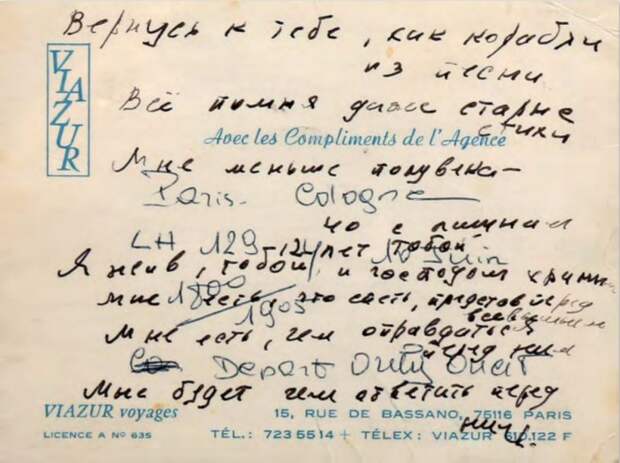 Вернусь к тебе, как корабли
из песни
VIAZUR
Всё помня даже старые
стихи
Avec les Compliments de l'Agence
Мне меньше полувека -
Paris - Cologne
но с лишним
LH 129 - 12 лет тобой
10 Juin
Я жив, тобой и господом храним
1800
Мне есть, что спеть, представ перед
всевышним
1905
Мне есть, чем оправдаться
перед ним
Depart Orly Ouest
Мне будет чем ответить перед
ним.
VIAZUR voyages
15, RUE DE BASSANO, 75116 PARIS
LICENCE A N° 635
TÉL.: 723 55 14 + TÉLEX: VIAZUR 610.122 F